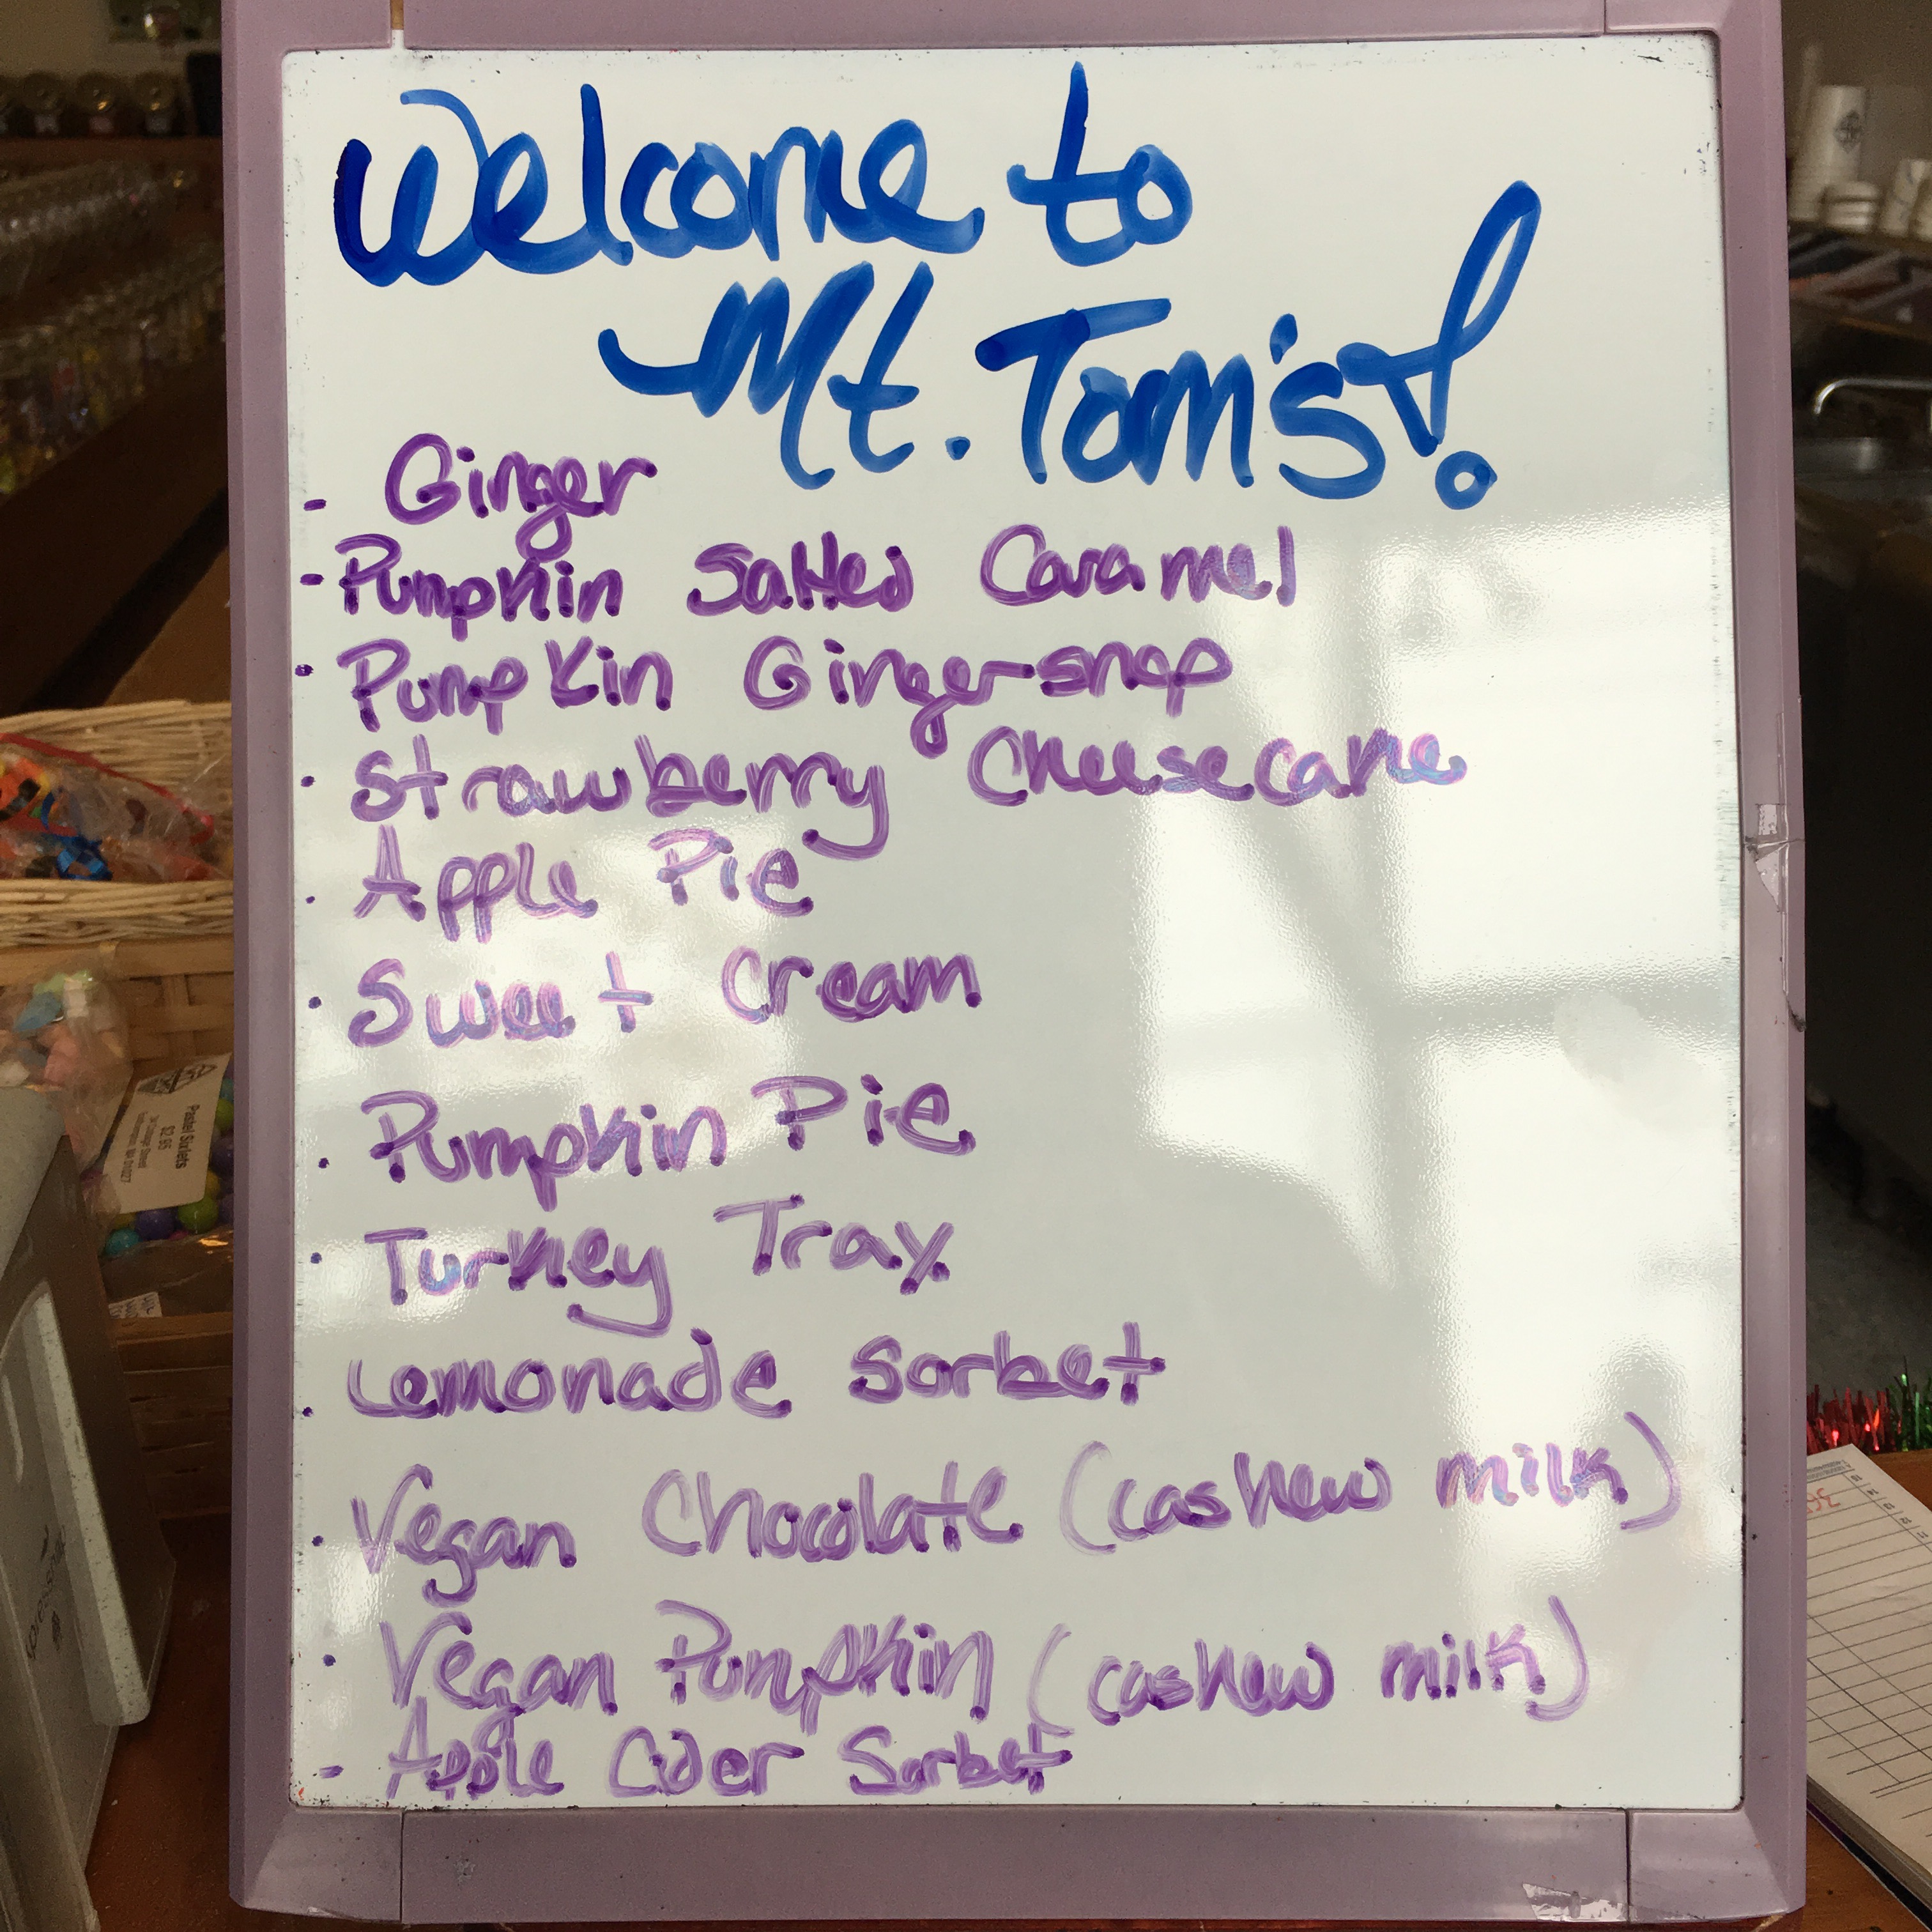 Welcome to
Mt. Tom's!
- Ginger
- Pumpkin Salted Caramel
· Pumpkin Gingersnap
· Strawberry Cheesecake
· Apple Pie
· Sweet Cream
· Pumpkin Pie
· Turkey Trax
· Lemonade Sorbet
· Vegan Chocolate (cashew milk)
· Vegan Pumpkin (cashew milk)
- Apple Cider Sorbet
Pastel Sixlets
$2.95